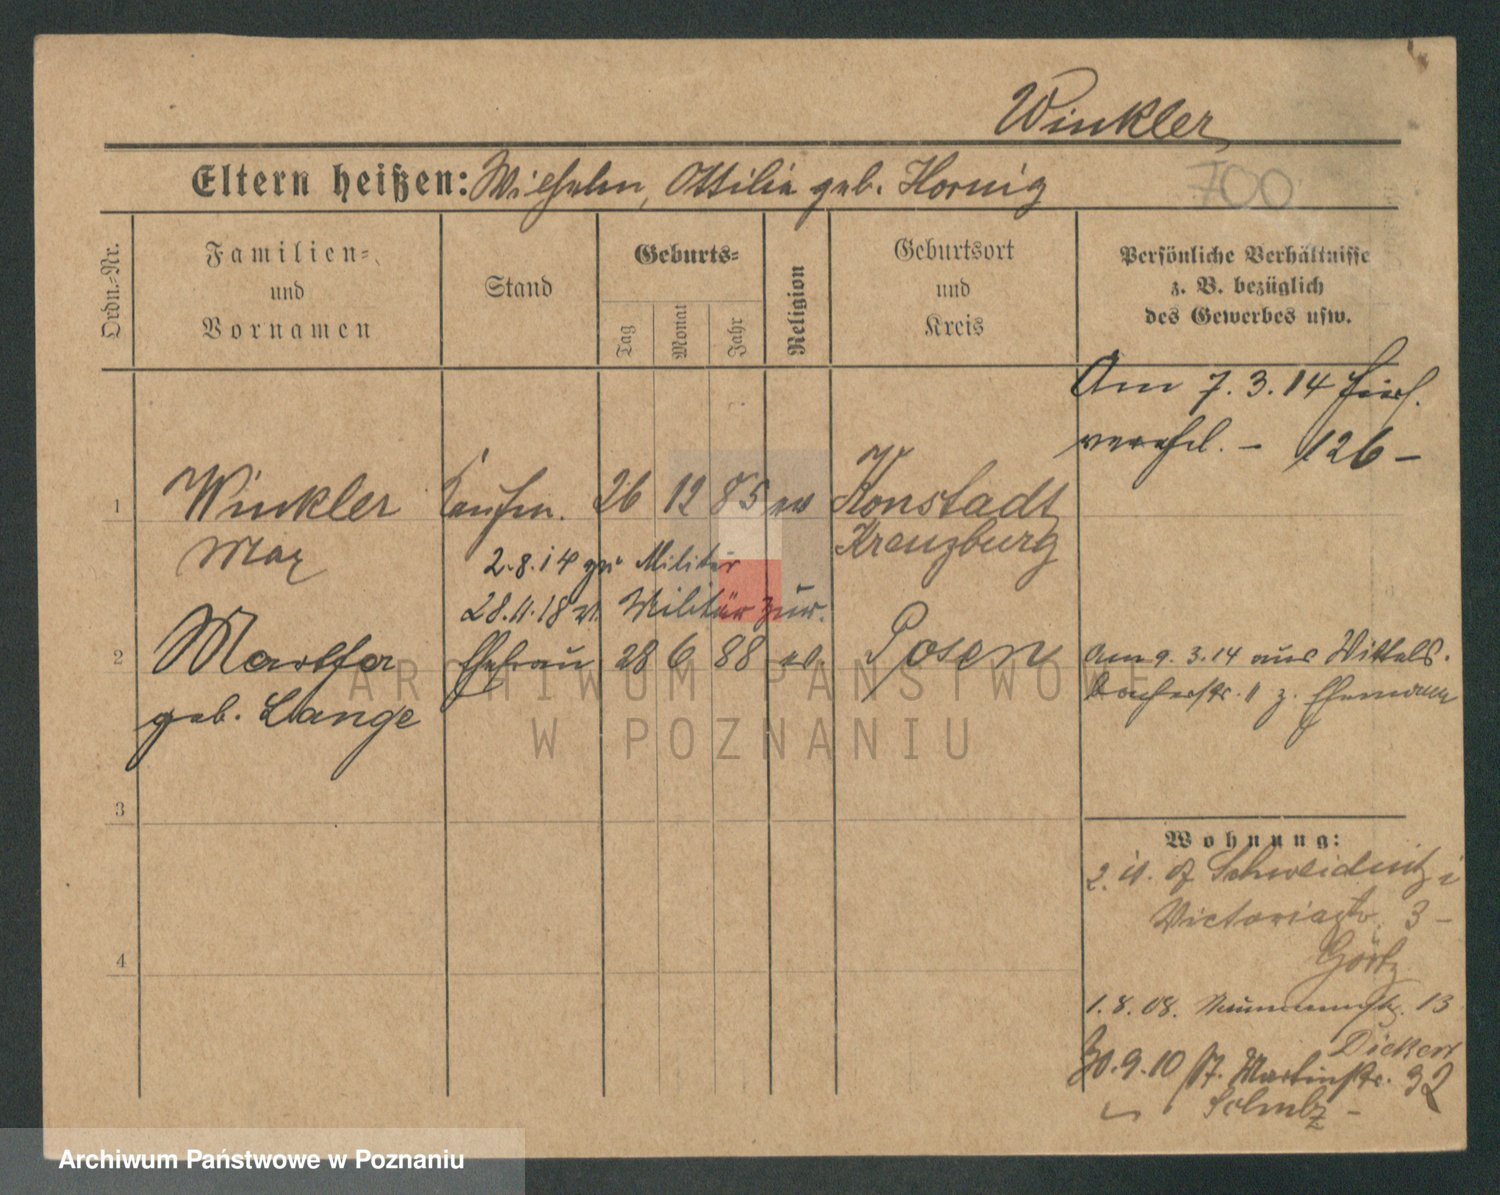 Winkler,
Eltern heißen: Wilhelm, Ottilie geb. Hornig
700
Ordn.-Nr.
Familien-
und
Vornamen
Stand
Geburts-
Tag
Monat
Jahr
Religion
Geburtsort
und
Kreis
Persönliche Verhältnisse
z. B. bezüglich
des Gewerbes usw.
Am 7.3.14
verehel. - 126-
1
Winkler Kaufm. 26 12 85 ev Konstadt
Max
Kreuzburg
2.8.14 zu Militär
28.11.18 v. Militär zur.
2
Martha Ehefrau 28 6 88 ev. Posen
geb. Lange
Am 9.3.14 aus Wittels-
bacherstr. 11 z. Ehemann
3
4
Wohnung:
2. 11. 07 Schweidnitz i
Victoriastr. 3 -
Görtz
1.8.08. Naumannstr. 13
Dickert
30.9.10 St. Martinstr. 32
Scholz -
ARCHIWUM PAŃSTWOWE
W POZNANIU
Archiwum Państwowe w Poznaniu